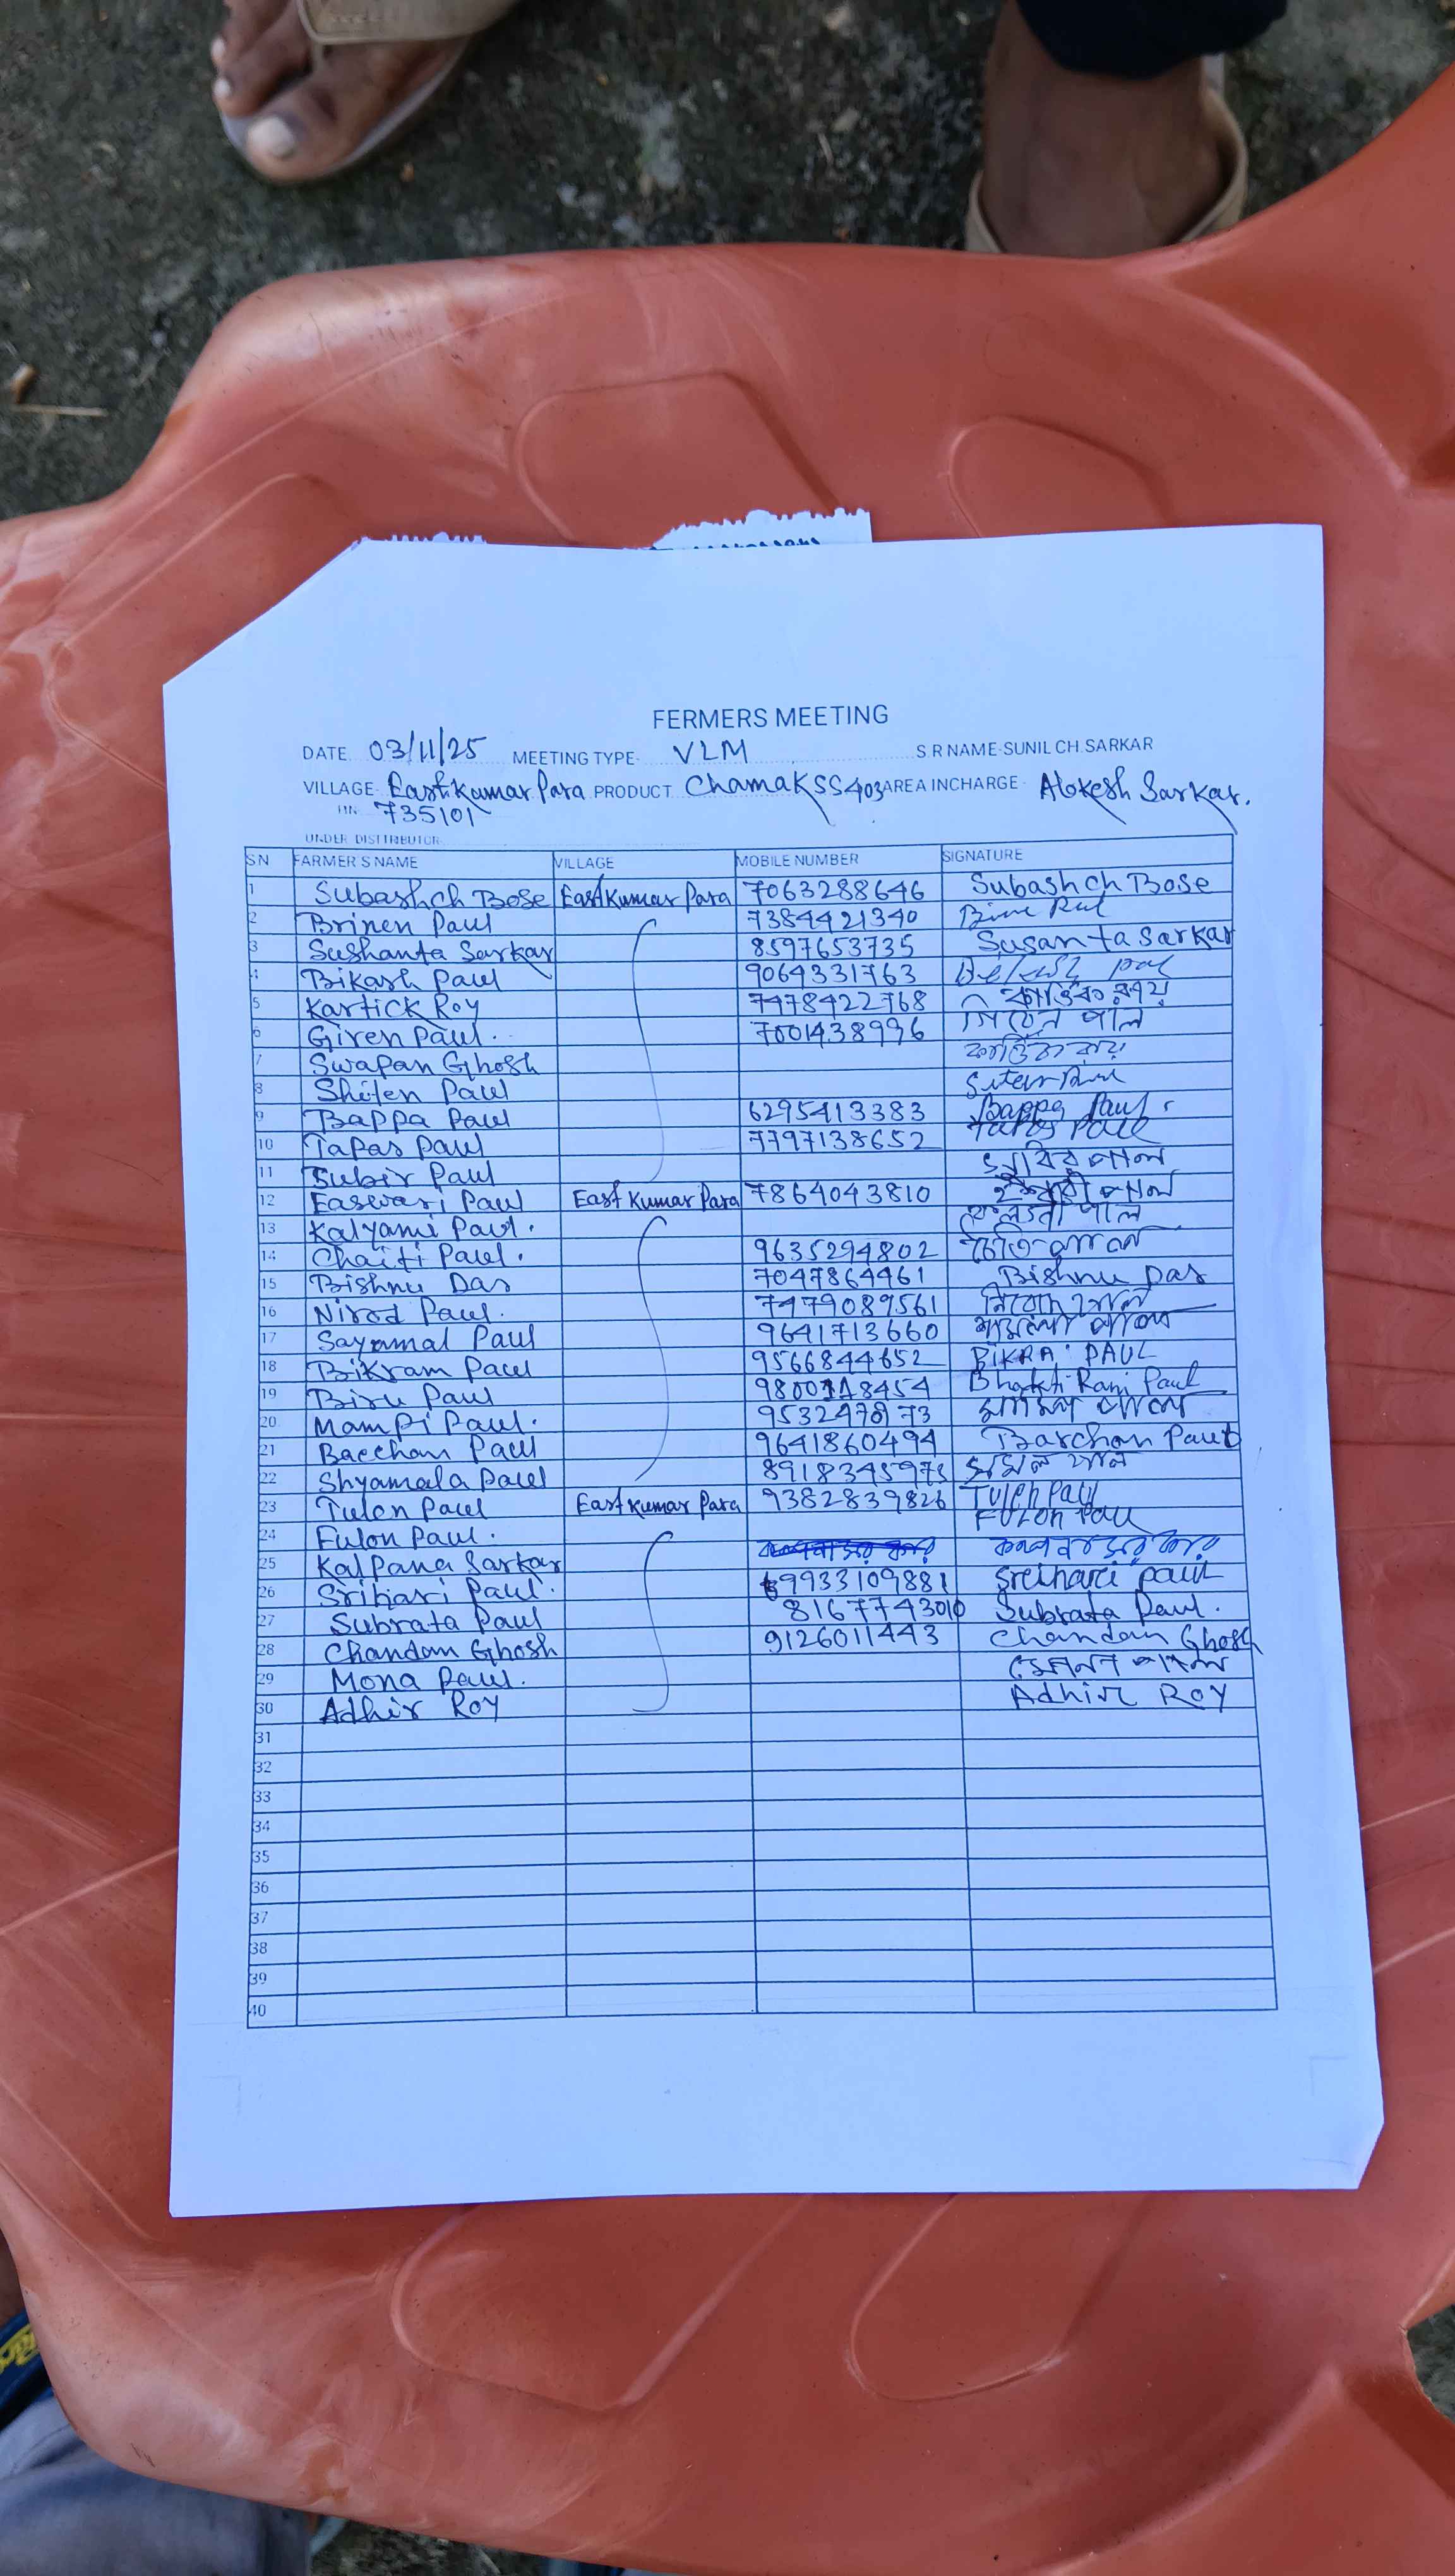 FERMERS MEETING
DATE 03/11/25 MEETING TYPE- VLM S R NAME-SUNIL CH. SARKAR
VILLAGE- East Kumar Para PRODUCT Chamak SS403 AREA INCHARGE- Alokesh Sarkar.
735101
UNDER DISTTRIBUTOR
SN FARMER S NAME VILLAGE MOBILE NUMBER SIGNATURE
1 Subash ch Bose East Kumar Para 7063288646 Subash ch Bose
2 Brinen Paul 7384421340
3 Sushanta Sarkar 8597653735 Susanta Sarkar
4 Bikash Paul 9064331763
5 Kartick Roy 7478422768 কার্তিক রায়
6 Giren Paul. 7001438996 গিরেন পাল
7 Swapan Ghosh
8 Shiten Paul
9 Bappa Paul 6295413383 Bappa Paul.
10 Tapas Paul 7797138652 Tapas Paul
11 Subir Paul পাল
12 Easwari Paul East Kumar Para 7864043810 পাল
13 Kalyani Paul. পাল
14 Chaiti Paul. 9635294802
15 Bishnu Das 7047864461 Bishnu Das
16 Nirod Paul. 7479089561
17 Sayamal Paul 9641713660
18 Bikram Paul 9566844652 BIKRA PAUL
19 Biru Paul Bhakti Rani Paul
20 Mampi Paul.
21 Bacchan Paul 9641860494 Barchan Paul
22 Shyamala Paul
23 Tulon Paul East Kumar Para 9382839826 Tulen Paul
24 Fulon Paul. FULON Paul
25 Kalpana Sarkar
26 Srihari Paul. 9933109881 Sreihari paul
27 Subrata Paul 8167743010 Subrata Paul.
28 Chandan Ghosh 9126011443 Chandan Ghosh
29 Mona Paul.
30 Adhir Roy Adhir Roy
31
32
33
34
35
36
37
38
39
40